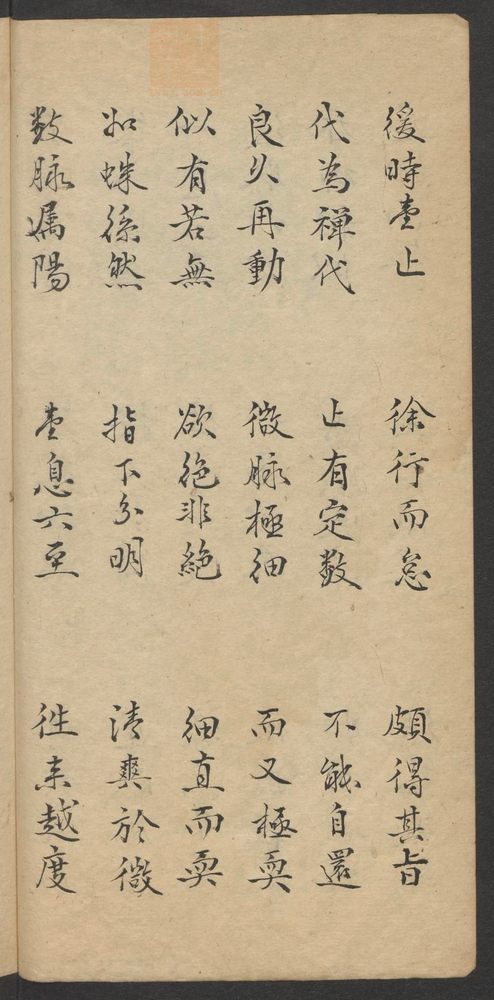 緩時壹止 徐行而怠 頗得其旨
代為禪代 止有定数 不能自還
良久再動 微脉極細 而又極耎
似有若無 欲絶非絶 細直而耎
如蛛絲然 指下分明 清爽於微
数脉属陽 壹息六至 往来越度